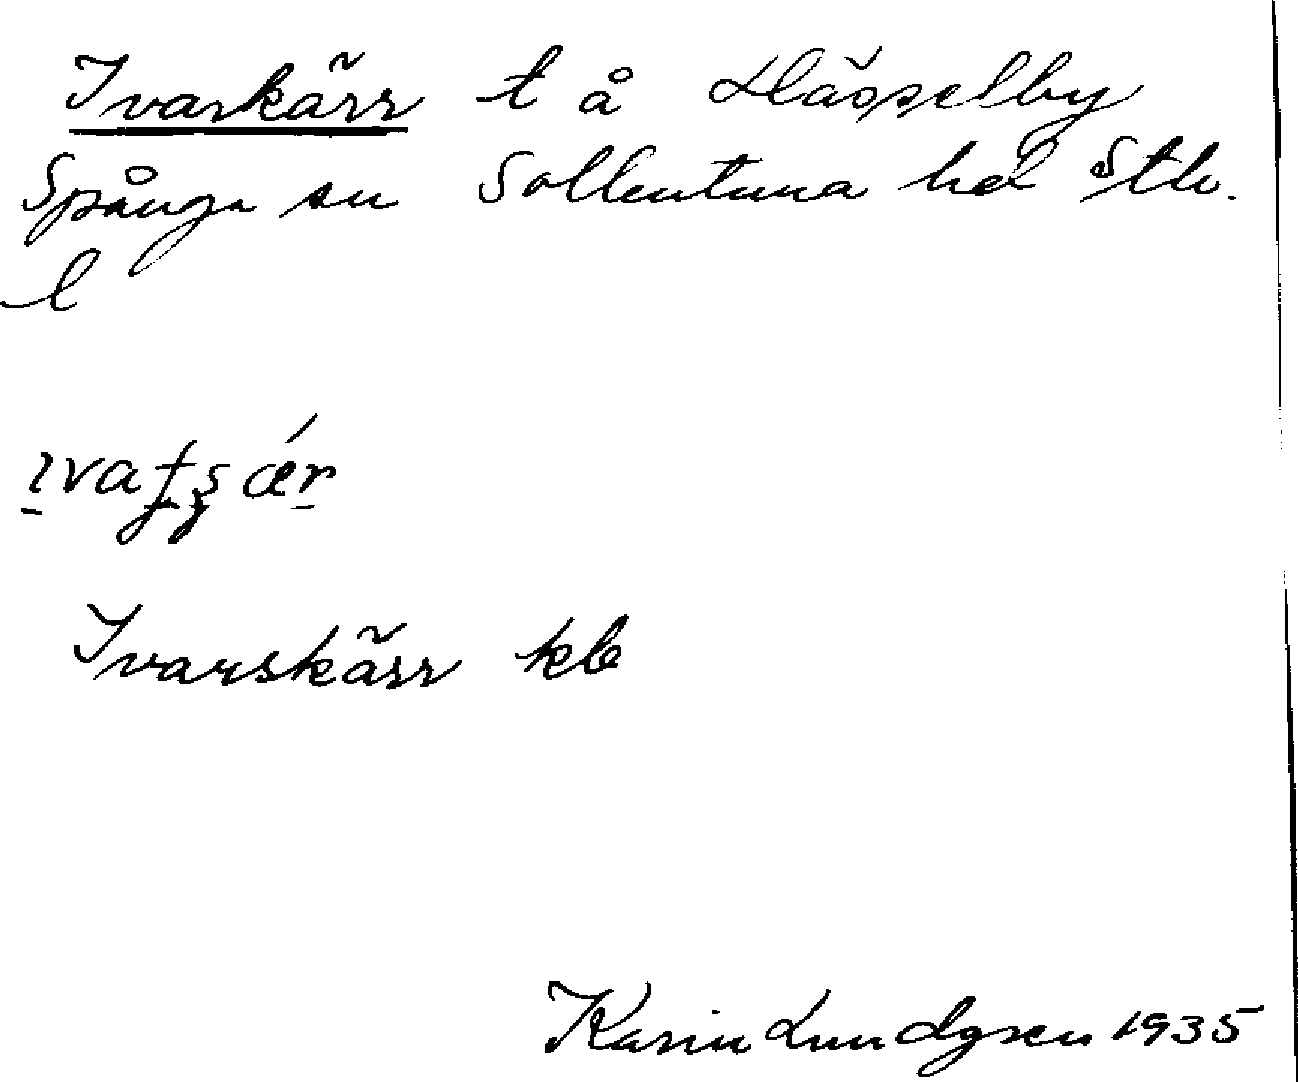 Ivarkärr t å Hässelby
Spånga sn Sollentuna hd Sth.
l
Ivarskärr kb
Karin Lundgren 1935